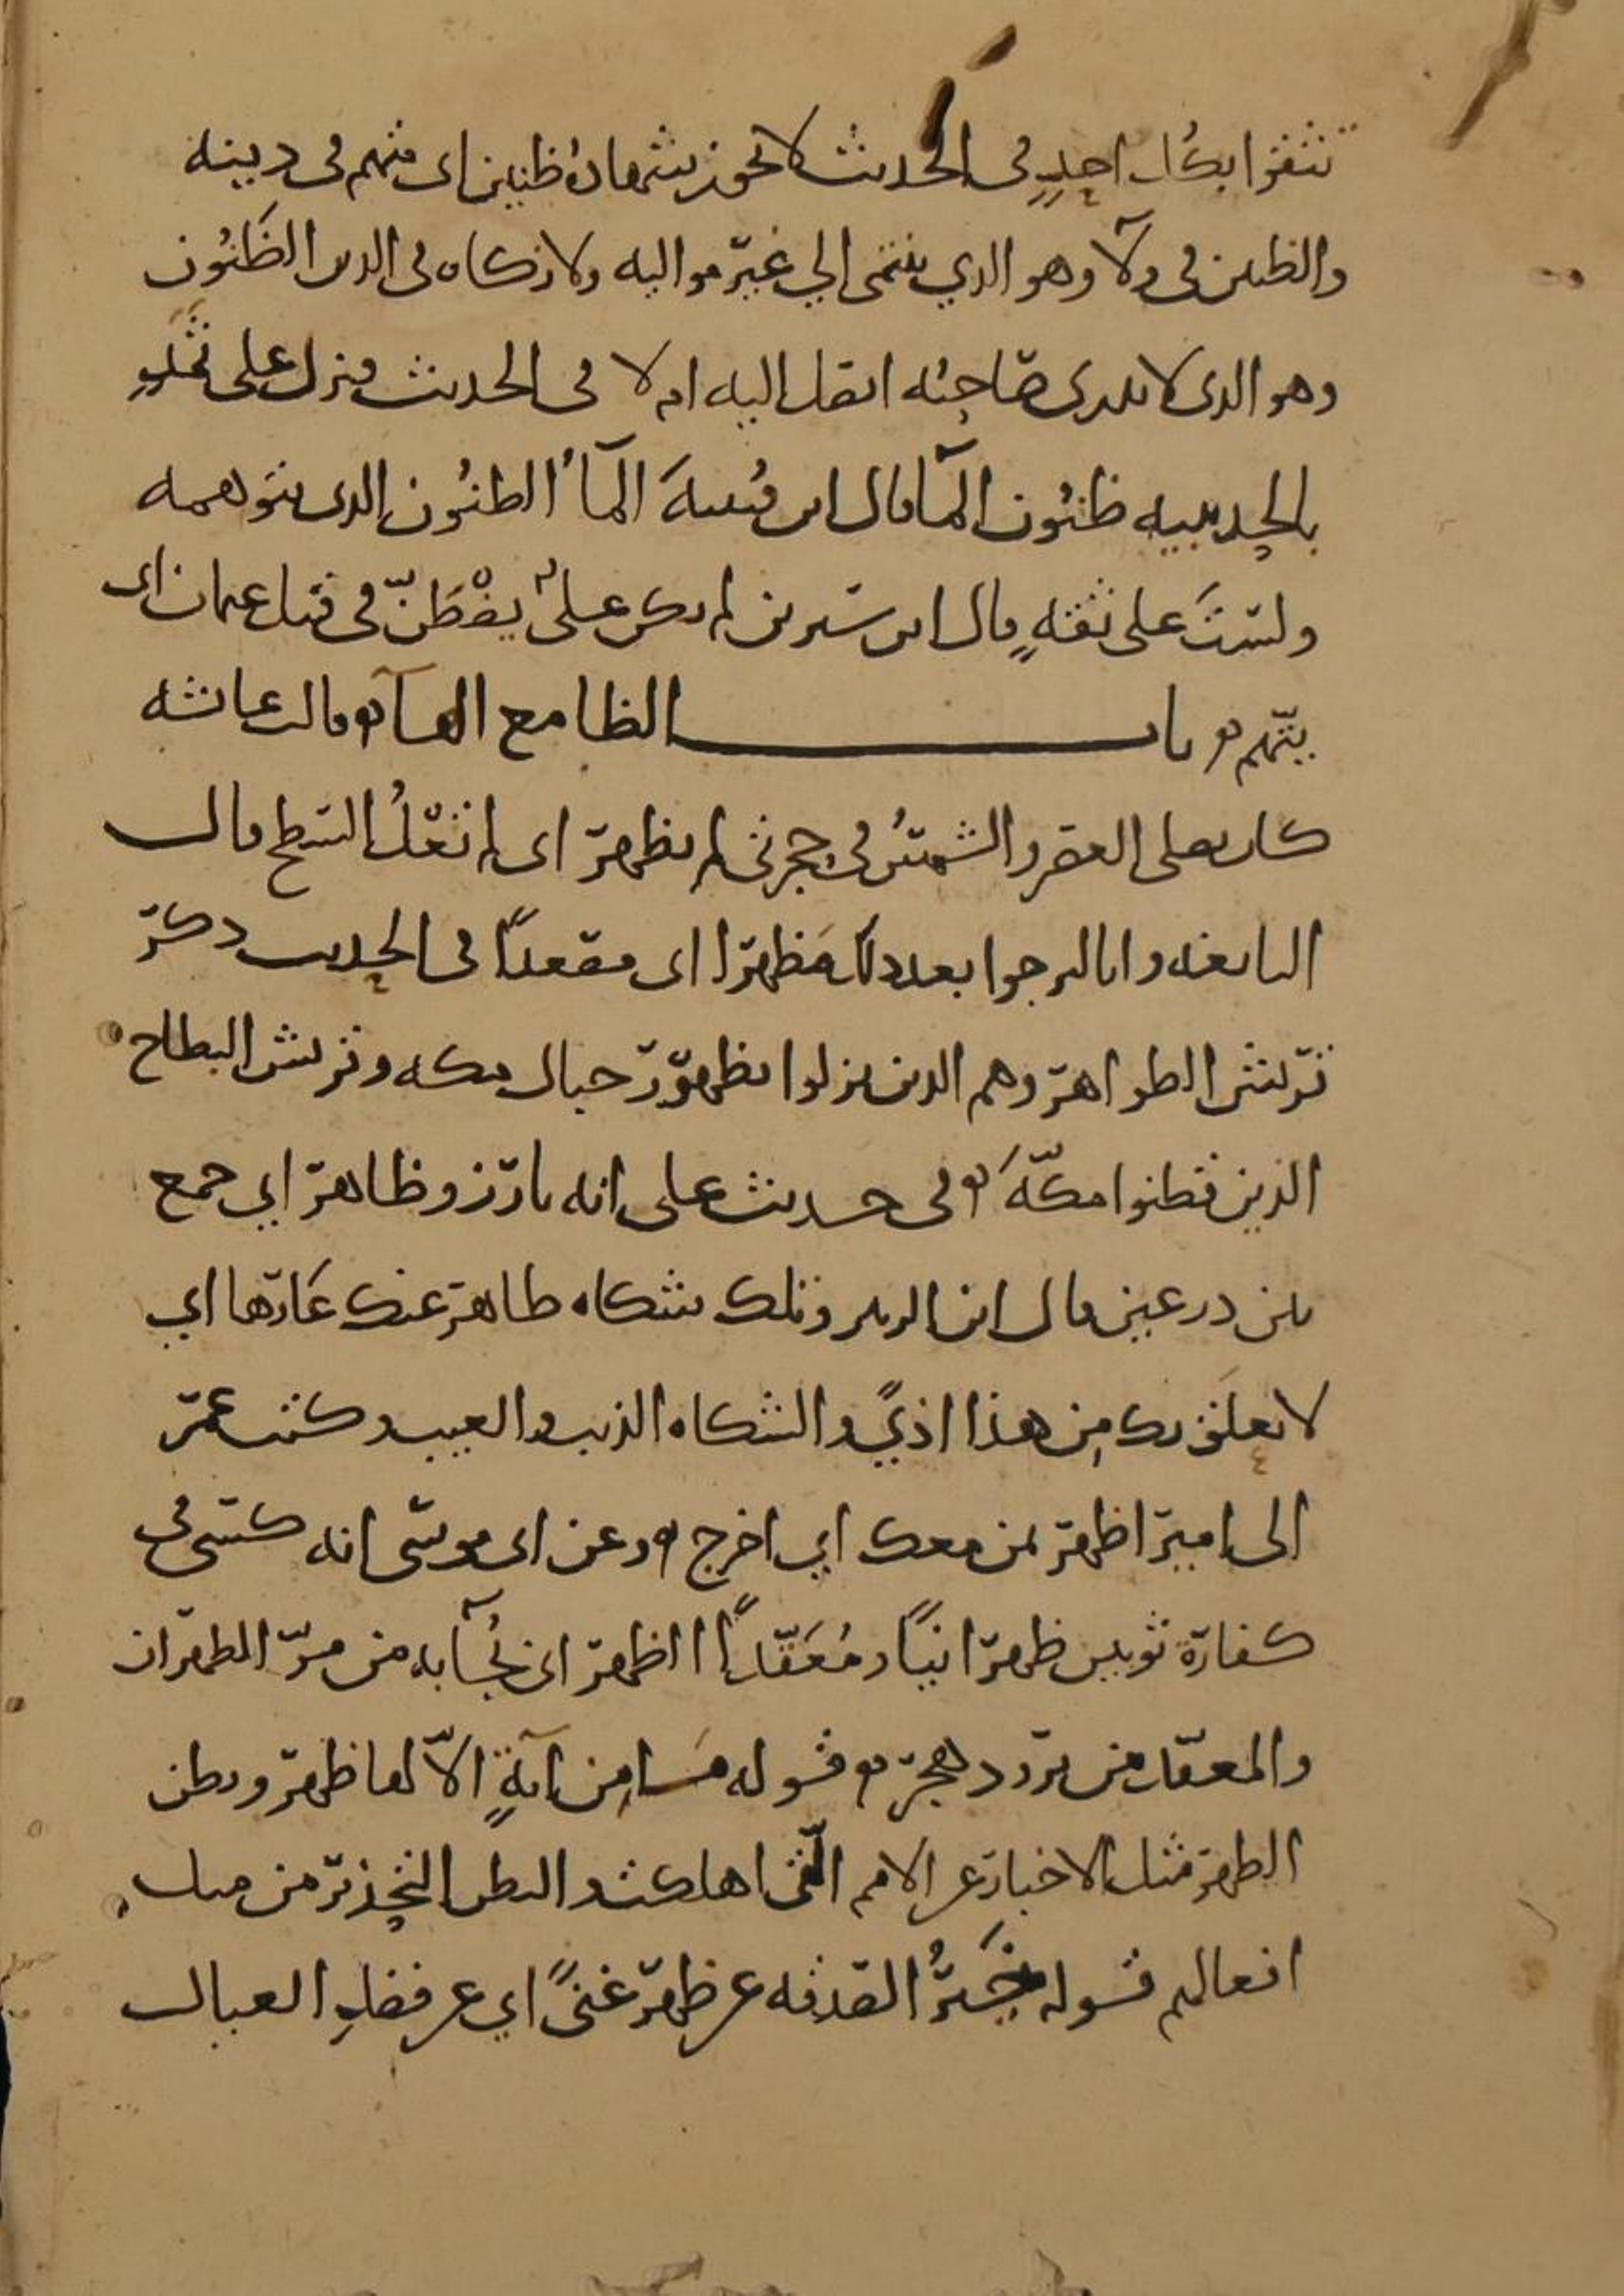 تثقوا بكل احدٍ في الحديث لا تجوز شهادة ظنين اى متهم فى دينه
والظنين فى ولآ وهو الذي ينتمى الي غير مواليه ولا زكاه فى الدين الظَنُون
وهو الذى لا يدرى صاحبُه ايصل اليه ام لا فى الحديث فنزل على ثمدٍ
بالحديبيه ظنُون المآ قال ابن قُتيبهَ المآءُ الظنُون الذى تتوهمه
ولستَ على ثقهٍ قال ابن سيرين لم يكن علىٌ يُظْطَنّ فى قتل عثمان اى
يتّهم باب الظا مع الهآ قالت عائشه
كان يصلى العصر والشمسُ فى حجرتى لم تظهر اى لم تَعْلُ السطح قال
النابغه وانا لنرجوا بعد ذلك مَظهرا اى مصعدًا فى الحديث ذكر
قريش الظواهر وهم الذين نزلوا بظهور جبال مكه وقريش البطاح
الذين قطنوا مكّهَ فى حديث على انه بارز وظاهر اي جمع
بين درعين قال ابن الزبير وتلك شكاه ظاهر عنك عَارها اي
لا يعلَق بك مِن هذا اذيً والشكاه الذنب والعيب وكتب عمر
الى امير اظهر بمن معك اي اخرج وعن ابى موسى انه كسى فى
كفارة ثوبين ظهرانيًا ومُعَقّدًا الظهرانى يُجآ به من مرّ الظهران
والمعقد من برود هجر قوله مَا مِن آيةٍ الاّ لها ظهر وبطن
الظهر مثل الاخبار عن الامم الّتى اهلكت والبطن التحذير من مثل
افعالهم قوله خَيرُ الصدقه عن ظهر غنىً اي عن فضلِ العيال